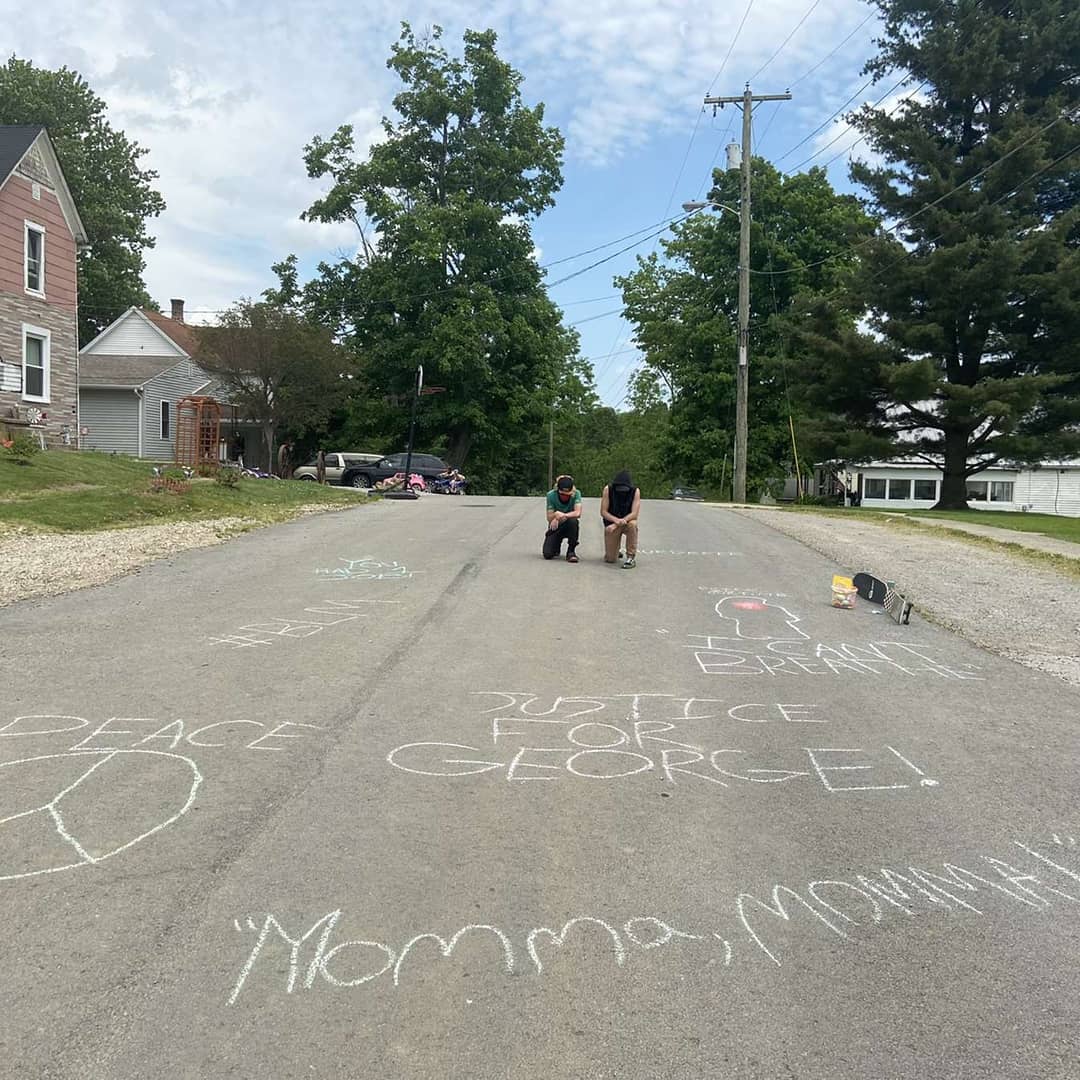 YOU
MATTER
#BLM
"I CAN'T
BREATHE"
PEACE
JUSTICE
FOR
GEORGE!
"Momma, MOMMA"